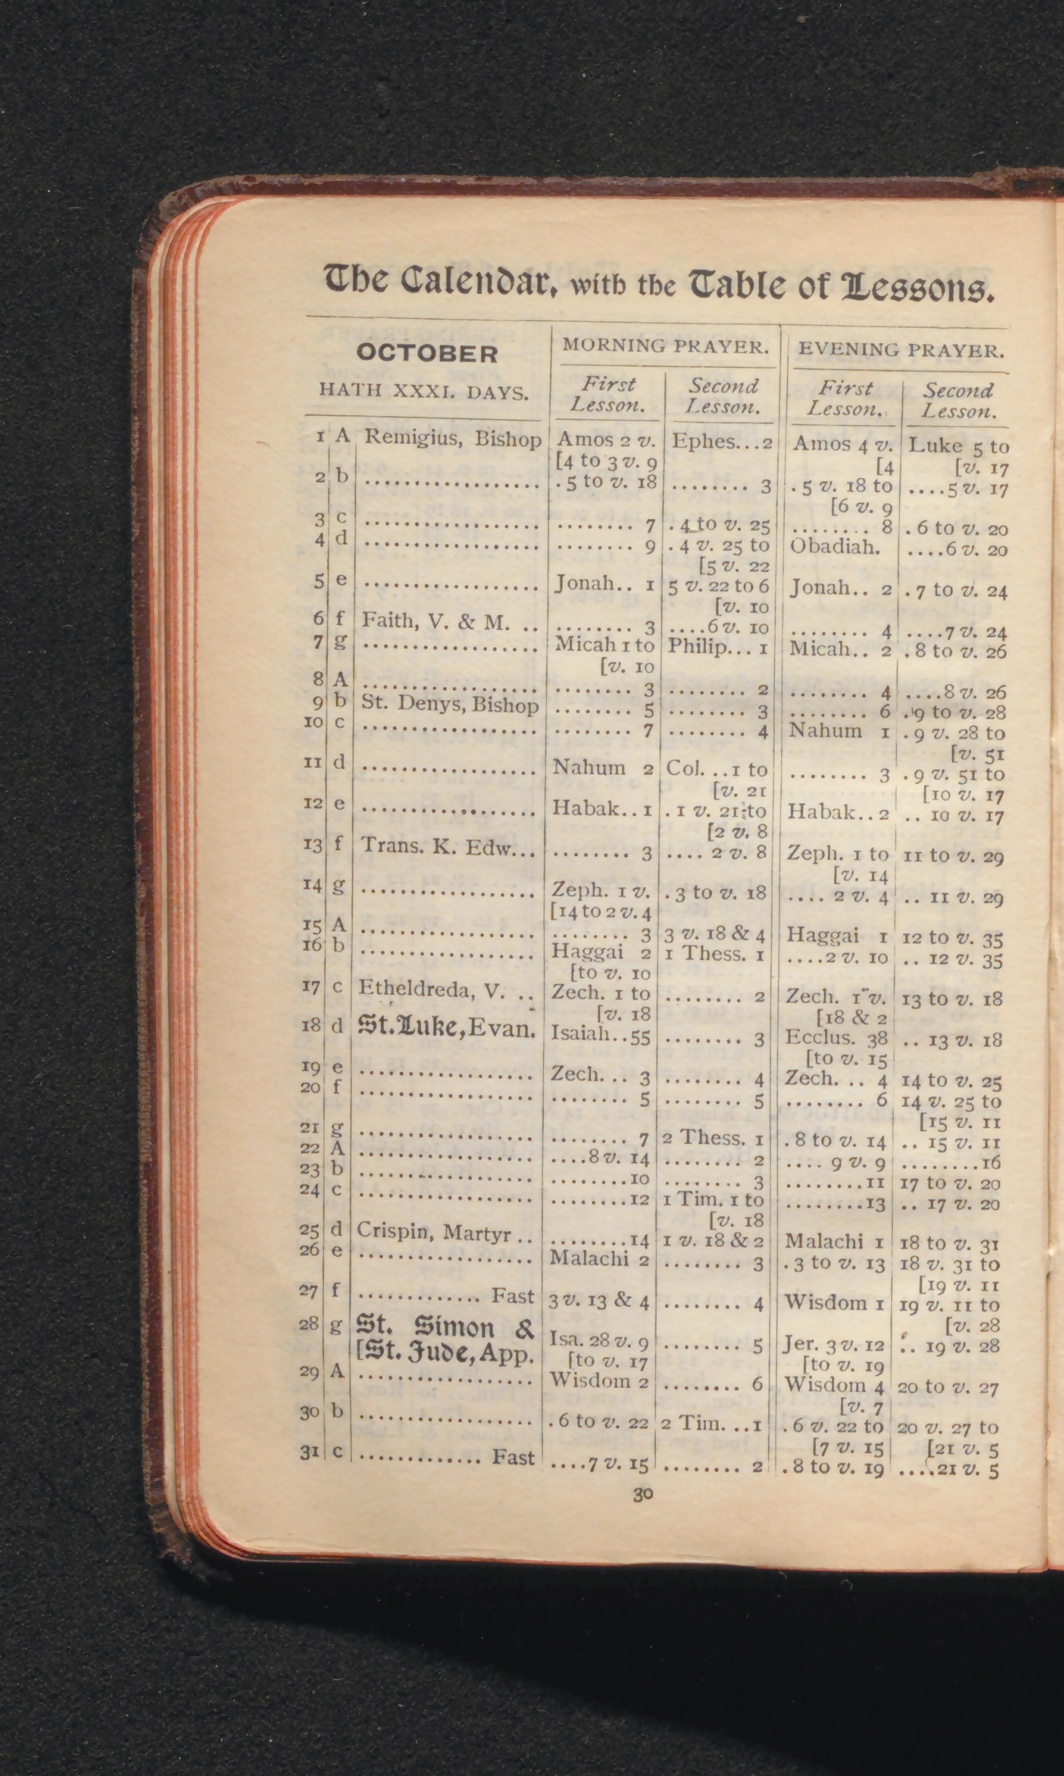 The Calendar, with the Table of Lessons.
OCTOBER HATH XXXI. DAYS. | MORNING PRAYER. | EVENING PRAYER.
First Lesson. | Second Lesson. | First Lesson. | Second Lesson.
1 A Remigius, Bishop | Amos 2 v. | Ephes...2 | Amos 4 v. | Luke 5 to
[4 to 3 v. 9 | [4 | [v. 17
2 b .................. | .5 to v. 18 | ........ 3 | .5 v. 18 to | ....5 v. 17
[6 v. 9
3 c .................. | ........ 7 | .4 to v. 25 | ........ 8 | .6 to v. 20
4 d .................. | ........ 9 | .4 v. 25 to | Obadiah. | ....6 v. 20
[5 v. 22
5 e .................. | Jonah.. 1 | 5 v. 22 to 6 | Jonah.. 2 | .7 to v. 24
[v. 10
6 f Faith, V. & M. .. | ........ 3 | ....6 v. 10 | ........ 4 | ....7 v. 24
7 g .................. | Micah 1 to | Philip... 1 | Micah.. 2 | .8 to v. 26
[v. 10
8 A .................. | ........ 3 | ........ 2 | ........ 4 | ....8 v. 26
9 b St. Denys, Bishop | ........ 5 | ........ 3 | ........ 6 | .9 to v. 28
10 c .................. | ........ 7 | ........ 4 | Nahum 1 | .9 v. 28 to
[v. 51
11 d .................. | Nahum 2 | Col...1 to | ........ 3 | .9 v. 51 to
[v. 21 | [10 v. 17
12 e .................. | Habak..1 | .1 v. 21 to | Habak..2 | .. 10 v. 17
[2 v. 8
13 f Trans. K. Edw... | ........ 3 | .... 2 v. 8 | Zeph. 1 to | 11 to v. 29
[v. 14
14 g .................. | Zeph. 1 v. | .3 to v. 18 | .... 2 v. 4 | .. 11 v. 29
[14 to 2 v. 4
15 A .................. | ........ 3 | 3 v. 18 & 4 | Haggai 1 | 12 to v. 35
16 b .................. | Haggai 2 | 1 Thess. 1 | ....2 v. 10 | .. 12 v. 35
[to v. 10
17 c Etheldreda, V. .. | Zech. 1 to | ........ 2 | Zech. 1 v. | 13 to v. 18
[v. 18 | [18 & 2
18 d St. Luke, Evan. | Isaiah..55 | ........ 3 | Ecclus. 38 | .. 13 v. 18
[to v. 15
19 e .................. | Zech... 3 | ........ 4 | Zech. .. 4 | 14 to v. 25
20 f .................. | ........ 5 | ........ 5 | ........ 6 | 14 v. 25 to
[15 v. 11
21 g .................. | ........ 7 | 2 Thess. 1 | .8 to v. 14 | .. 15 v. 11
22 A .................. | ....8 v. 14 | ........ 2 | .... 9 v. 9 | ........16
23 b .................. | ........10 | ........ 3 | ........11 | 17 to v. 20
24 c .................. | ........12 | 1 Tim. 1 to | ........13 | .. 17 v. 20
[v. 18
25 d Crispin, Martyr .. | ........14 | 1 v. 18 & 2 | Malachi 1 | 18 to v. 31
26 e .................. | Malachi 2 | ........ 3 | .3 to v. 13 | 18 v. 31 to
[19 v. 11
27 f ............. Fast | 3 v. 13 & 4 | ........ 4 | Wisdom 1 | 19 v. 11 to
[v. 28
28 g St. Simon & | Isa. 28 v. 9 | ........ 5 | Jer. 3 v. 12 | .. 19 v. 28
[St. Jude, App. | [to v. 17 | [to v. 19
29 A .................. | Wisdom 2 | ........ 6 | Wisdom 4 | 20 to v. 27
[v. 7
30 b .................. | .6 to v. 22 | 2 Tim...1 | .6 v. 22 to | 20 v. 27 to
[7 v. 15 | [21 v. 5
31 c ............. Fast | ....7 v. 15 | ........ 2 | .8 to v. 19 | ....21 v. 5
30